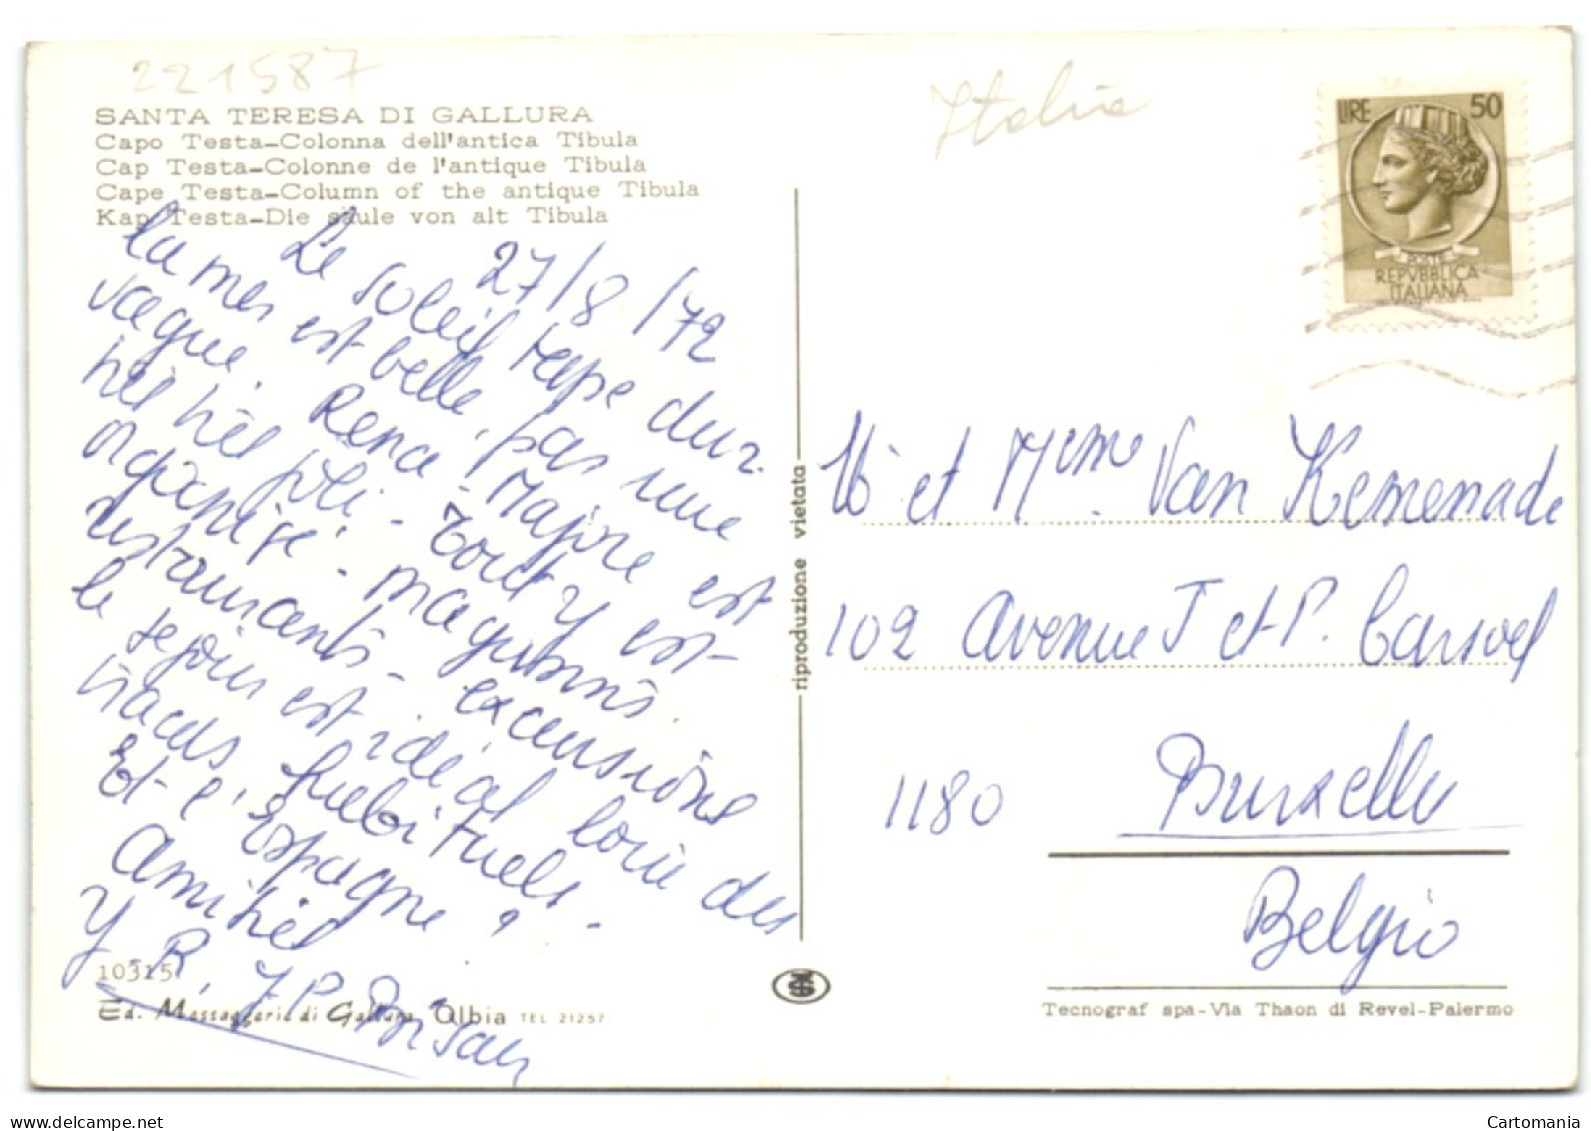 221587
Italie
SANTA TERESA DI GALLURA
Capo Testa-Colonna dell'antica Tibula
Cap Testa-Colonne de l'antique Tibula
Cape Testa-Column of the antique Tibula
Kap Testa-Die säule von alt Tibula
27/8/72
Le soleil tape dur.
la mer est belle, pas une
vague. Rena-Majore est
très très joli. Tout y est
organisé. magasins.
restaurants. excursions
le séjour est idéal loin des
tracas habituels.
Et l'Espagne ?
Amitiés
Y-R, J.P.
10315
Ed. Messaggerie di Gallura Olbia TEL 21257
riproduzione vietata
LIRE 50
POSTE
REPVBBLICA
ITALIANA
M et Mme. Van Kemenade
102 Avenue J et P. Carsoel
1180 Bruxelles
Belgio
Tecnograf spa-Via Thaon di Revel-Palermo
www.delcampe.net
Cartomania